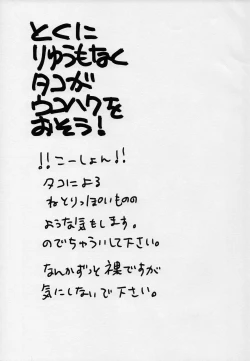 とくに
りゅうもなく
タコが
ウコハクを
おそう!
!!こーしょん!!
タコによる
ねとりっぽいものの
ような気もします。
のでちゅういして下さい。
なんかずっと裸ですが
気にしないで下さい。